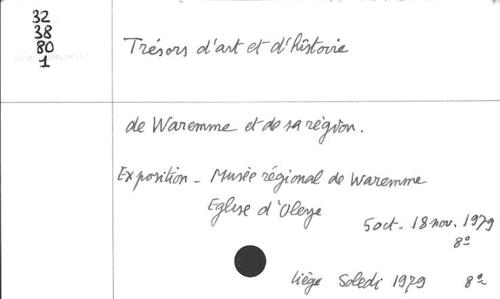 32
38
80
1
Trésors d'art et d'histoire
de Waremme et de sa région.
Exposition - Musée régional de Waremme
Eglise d'Oleye
5 oct. 18 nov. 1979
8°
Liège Soledi 1979 8°